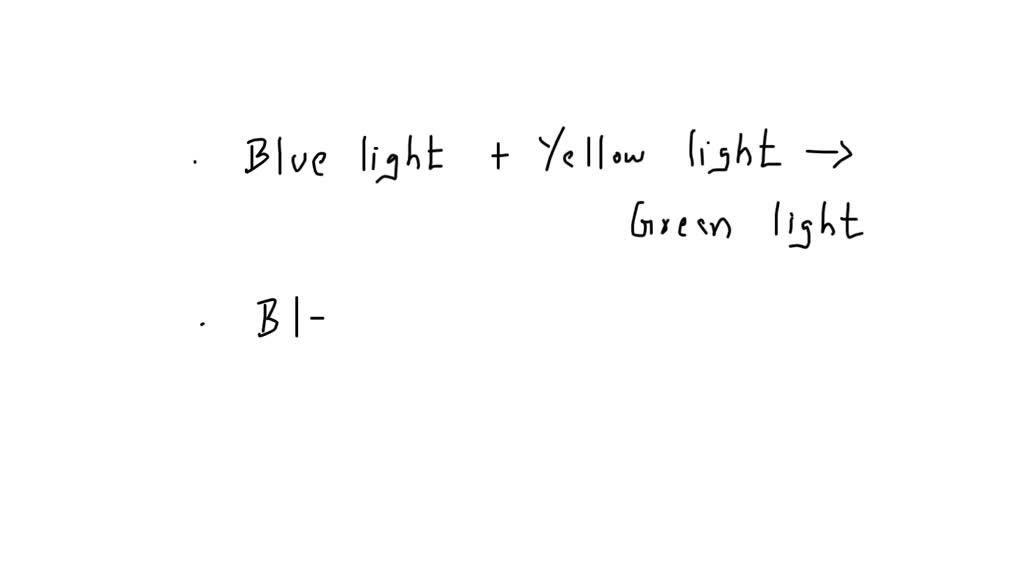 . Blue light + Yellow light →
Green light
. Bl-